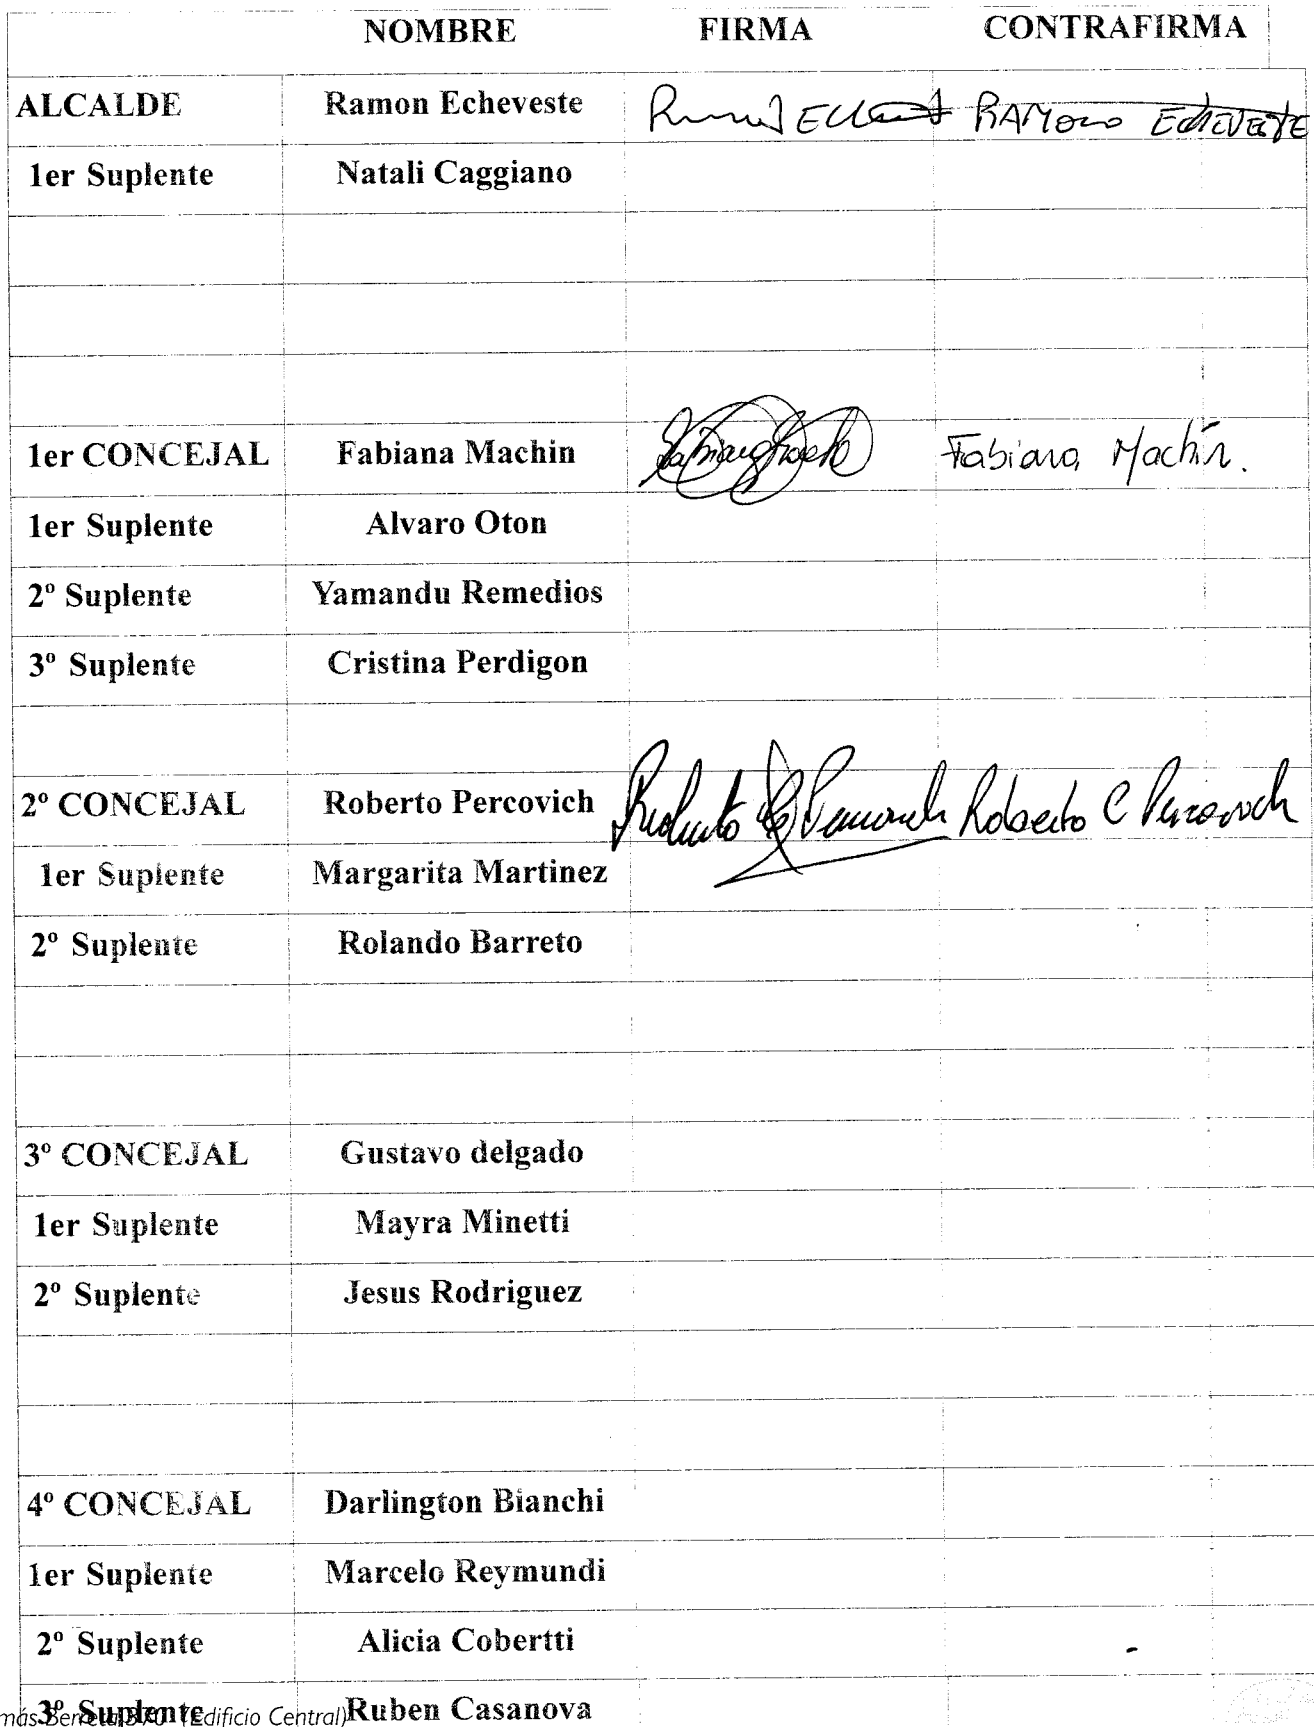 NOMBRE FIRMA CONTRAFIRMA
ALCALDE Ramon Echeveste RAMON ECHEVESTE
1er Suplente Natali Caggiano
1er CONCEJAL Fabiana Machin Fabiana Machín.
1er Suplente Alvaro Oton
2º Suplente Yamandu Remedios
3º Suplente Cristina Perdigon
2º CONCEJAL Roberto Percovich Roberto C Percovich
1er Suplente Margarita Martinez
2º Suplente Rolando Barreto
3º CONCEJAL Gustavo delgado
1er Suplente Mayra Minetti
2º Suplente Jesus Rodriguez
4º CONCEJAL Darlington Bianchi
1er Suplente Marcelo Reymundi
2º Suplente Alicia Cobertti
3º Suplente Ruben Casanova
más Berreta 370 (Edificio Central)